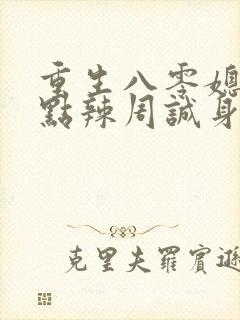 重生八零媳
點辣周誠身
克里夫羅賓遜